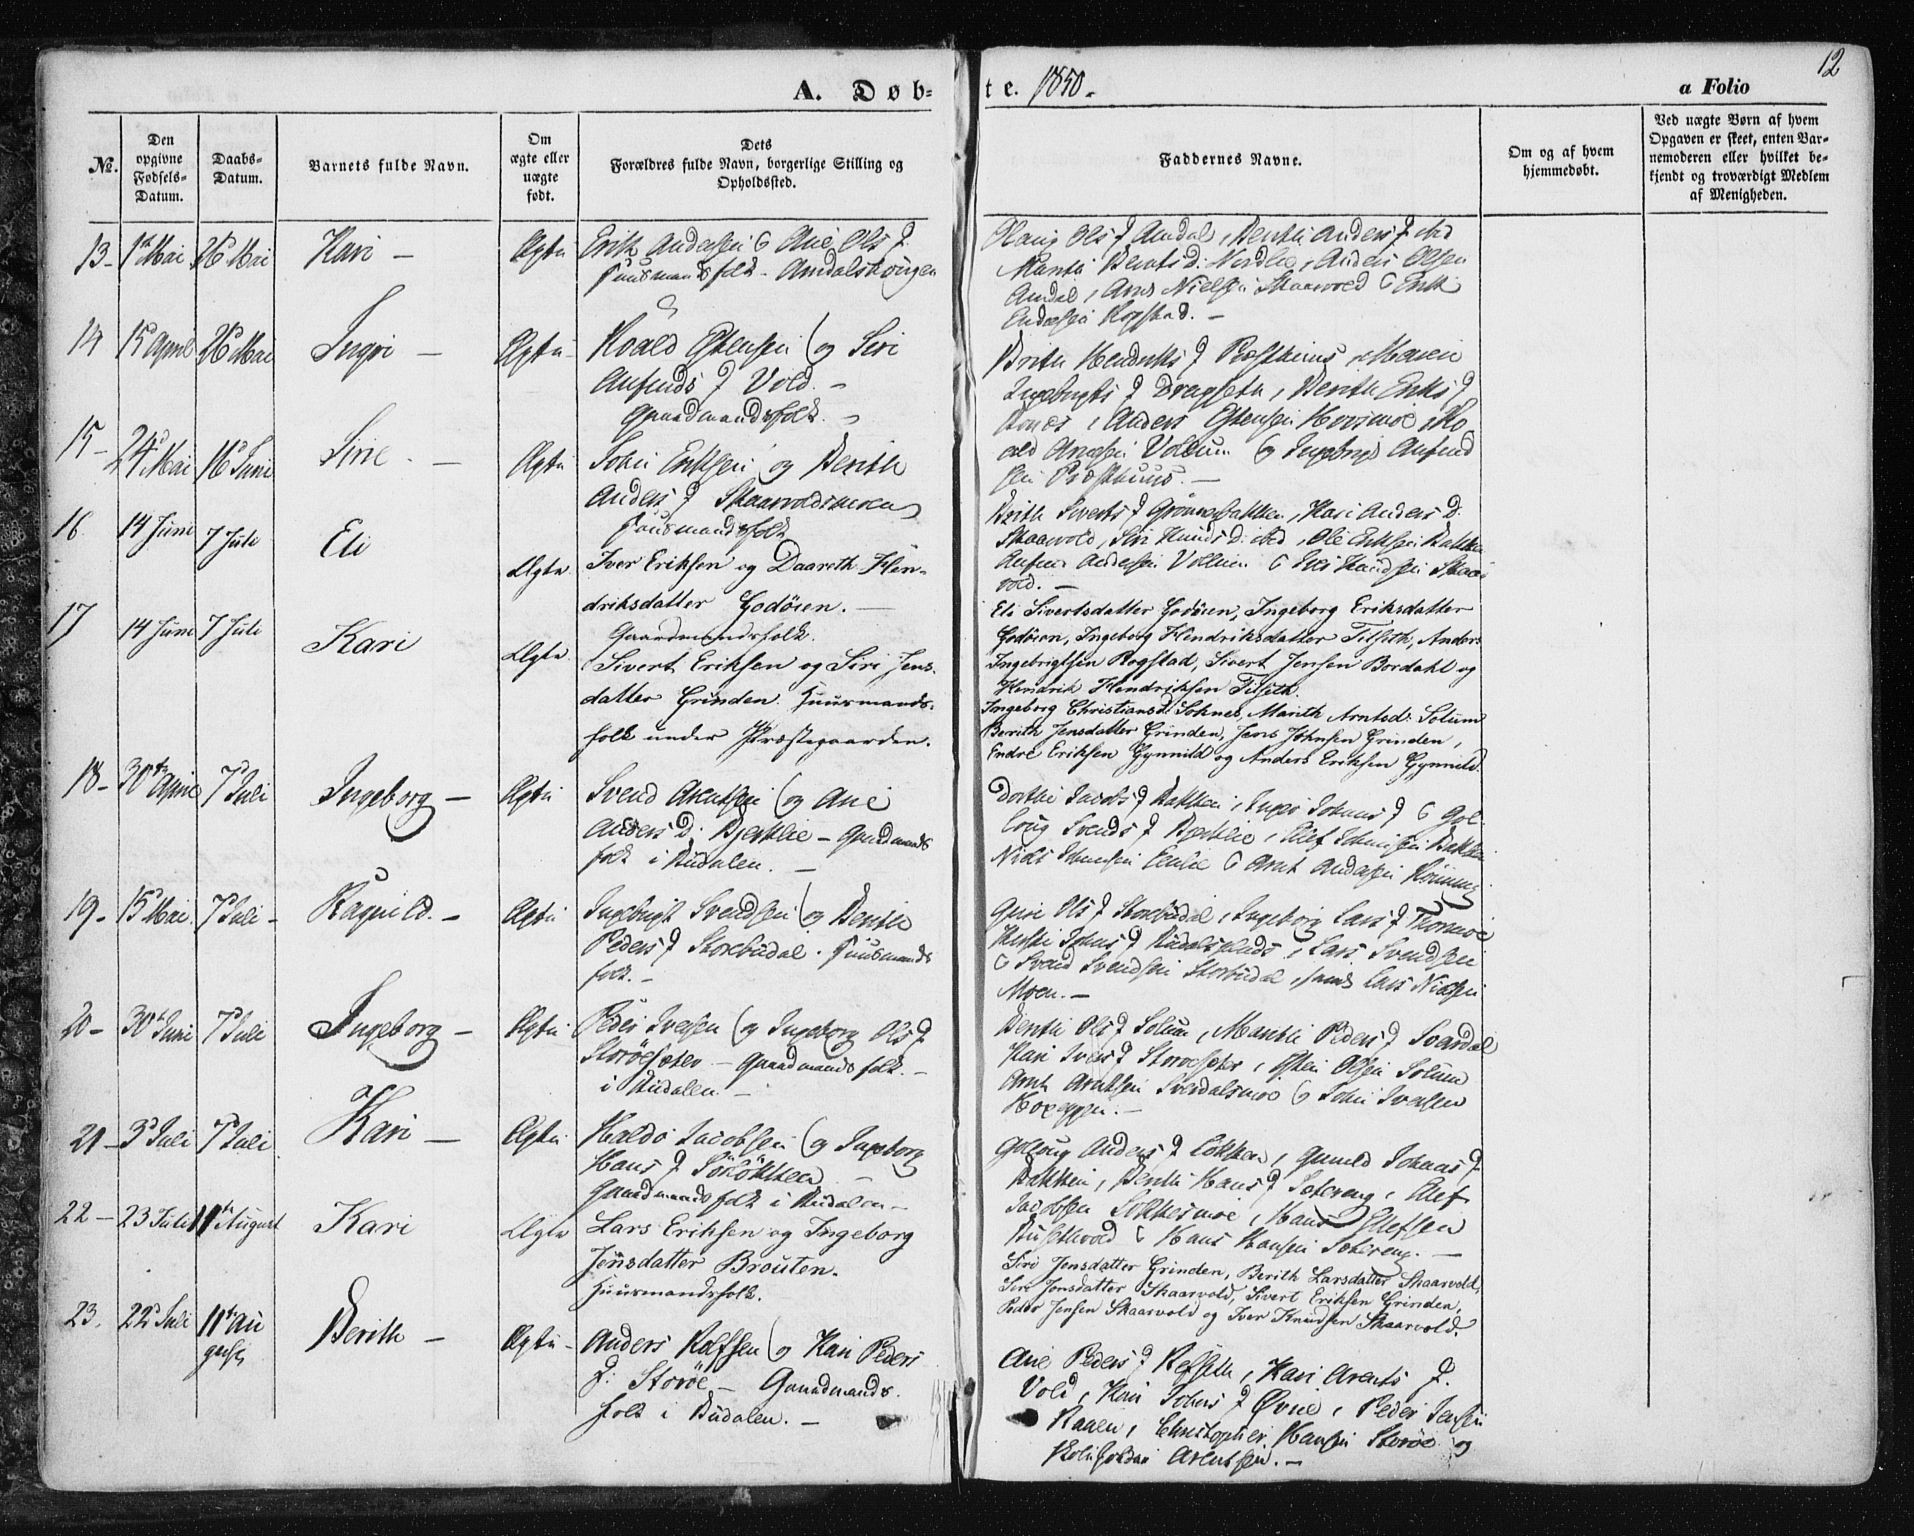 12
A. Døb-
te. 1850.
a Folio
No.
Den opgivne Fødsels-Datum.
Daabs-Datum.
Barnets fulde Navn.
Om ægte eller uægte født.
Dets Forældres fulde Navn, borgerlige Stilling og Opholdssted.
Faddernes Navne.
Om og af hvem hjemmedøbt.
Ved uægte Børn af hvem Opgaven er skeet, enten Barnemoderen eller hvilket bekjendt og troværdigt Medlem af Menigheden.
13 - 1ste Mai 26 Mai Kari - Ægte
Erik Andersen & Ane Ols D.
Huusmandsfolk - Amdalskougen
Amdal, Berithe Anders D. ibd
Marithe Bernts D. Anders Olsen
Amdal, Arnt Nielsen Skaarvold & Erik
Endresen Rogstad. -
14 15 April 26 Mai Ingri - Ægte
Hoald Estensen (og Siri
Anfinds D Vold. -
Gaardmandsfolk. -
Berith Hendriks D Præsthuus, Maren
Ingebrigts D Dragseth, Berith Eriks D
Anders Estensen Hovsmoe
Vollum (og Ingebrigt Anfind
sen Præsthuus. -
15 - 24 Mai 16 Juni Siri - Ægte
John Eriksen (og Berith
Anders D Skaarvoldsmoen
Huusmandsfolk
Berith Siverts D Grønnesbakken, Kari Anders D.
Skaarvold, Siri Knuds D: ibd, Ole Eriksen Bakken
Anfin Andersen Vollum & Iver Knudsen Skaar
vold. -
16 14 Juni 7 Juli Eli Ægte
Iver Eriksen og Daareth Hen-
driksdatter Godøien. -
Gaardmandsfolk.
Eli Sivertsdatter Godøien, Ingeborg Eriksdatter
Godøien, Ingeborg Hendriksdatter Tilseth, Anders
Ingebrigtsen Rogstad, Sivert Jensen Bordahl og
Hendrik Hendriksen Tilseth.
17 14 Juni 7 Juli Kari Ægte
Sivert Eriksen og Siri Jens-
datter Grinden. Huusmands-
folk under Præstegaarden.
Ingeborg Christiansd: Soknes, Marith Arntsd: Solum
Berith Jensdatter Grinden, Jens Johnsen Grinden,
Endre Eriksen Gynnild og Anders Eriksen Gynnild.
18 - 30te April 7 Juli Ingeborg - Ægte
Svend Arentsen (og Ane
Anders D. Bjerklie - Gaardmands
folk i Budalen. -
Dorthe Jacobs D Bakken, Johans D & Gol
laug Svends D Bjerklie, Ellef Bakken
Niels Enlie & Arnt Andersen
19 - 15 Mai 7 Juli - Ragnild. - Ægte
Ingebrigt Svendsen (og Berith
Peders D Storebudal. Huusmands
folk. -
Guri Ols D Storbudal, Ingeborg Lars D Thormoe
Johns D Budalsplads, Lars Svendsen
& Svend Svendsen Storbudal, samt Lars Nielsen
Moen. -
20 - 30te Juni 7 Juli Ingeborg - Ægte
Peder Iversen (og Ingeborg Ols D
Storøesæter - Gaardmandsfolk. -
i Budalen -
Berith Ols D Solum, Marithe Peders D Sverdal
Kari Ivers D Storøesæter, Østen Olsen Solum
Arnt Arntsen Sverdalsmoe & John Iversen
Hoxeggen. -
21 - 3 Juli 7 Juli Kari - Ægte
Haldo Jacobsen (og Ingeborg
Hans D Sørløkken -
Gaardmandsfolk i Budalen -
Gollaug Anders D Løkken, Gunild Johans D
Bakken, Berith Hans D Sætereng, Ellef
Jacobsen Løkkesmoe, Hans Ellefsen
Busethvold & Hans Hansen Sætereng. -
22 - 23 Juli 11te August Kari Ægte
Lars Eriksen og Ingeborg
Jonsdatter Brouten.
Huusmandsfolk.
Siri Jensdatter Grinden, Berith Larsdatter Skaarvold,
Siri Jonsdatter Skaarvold, Sivert Eriksen Grinden,
Peder Jensen Skaarvold og Iver Knudsen Skaarvold.
23. 22 Juli 11te August Berith - Ægte -
Anders Rolfsen (og Kari Peders
D: Storøe - Gaardmands.
folk i Budalen. -
Ane Peders D Refseth, Kari Arents D.
Vold, Kari Johns D Øvne, Peder Jensen
Raaen, Christopher Hansen Storøe og
Arentsen. -